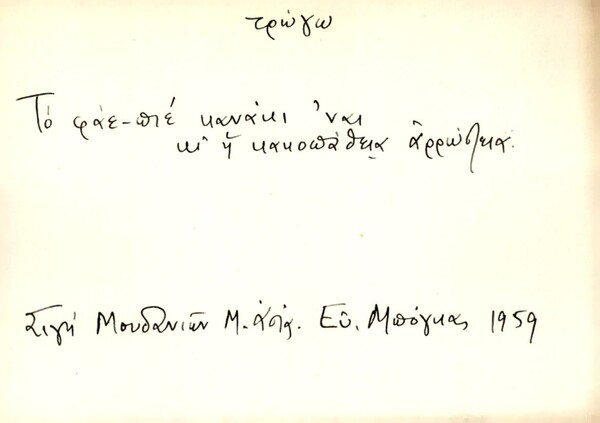 τρώγω
Τό φάε-πιέ κανάκι 'ναι
κι ἡ κακοπάθεια ἀρρώστεια.
Σιγή Μουδανιῶν Μ. Ἀσία. Εὐ. Μπόγκας 1959